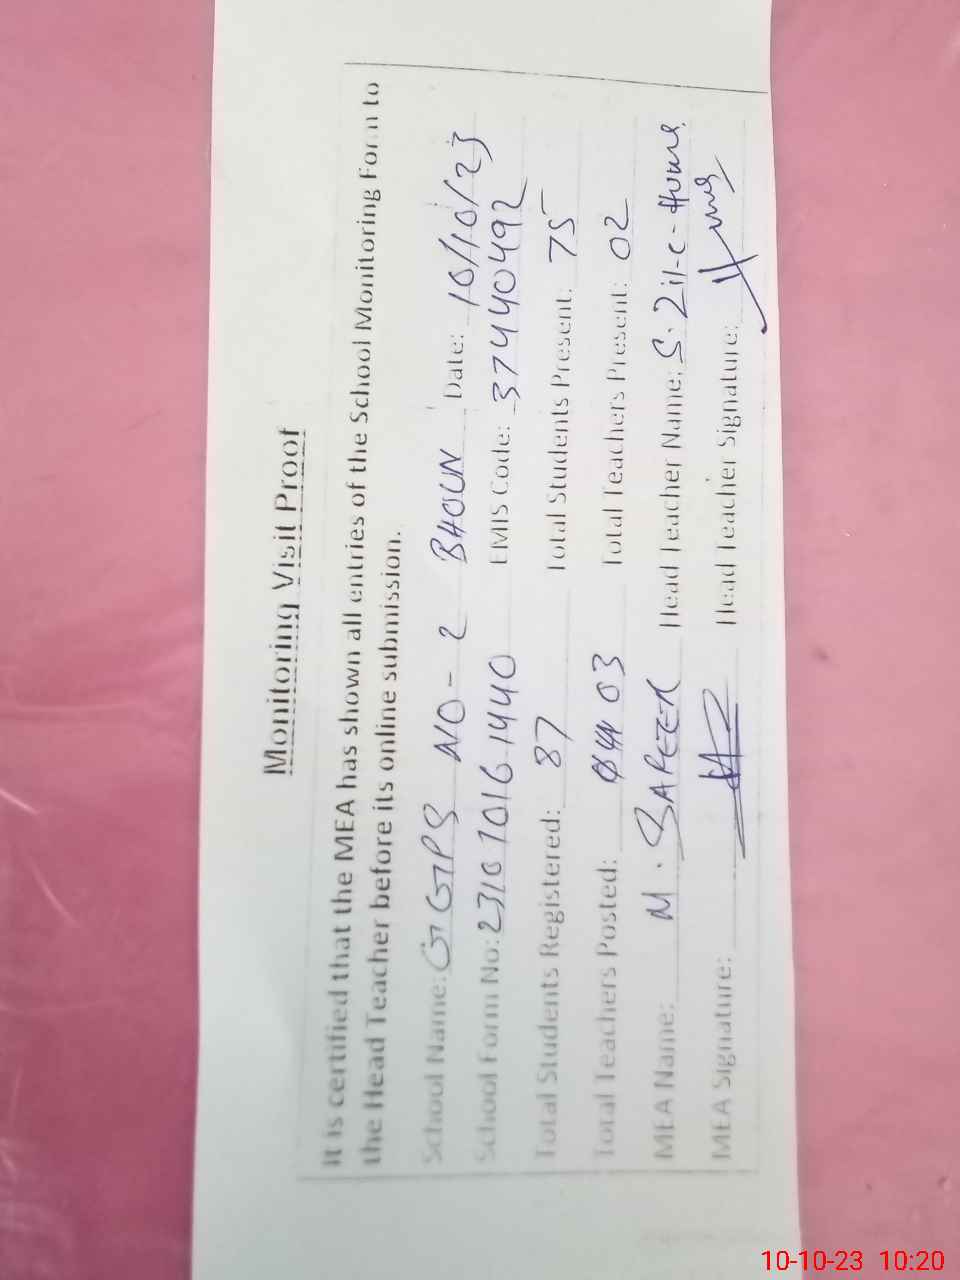 Monitoring Visit Proof
It is certified that the MEA has shown all entries of the School Monitoring Form to
the Head Teacher before its online submission.
School Name: GGPS NO-2 BHOUN Date: 10/10/23
School Form No: 2310 1016 1440 EMIS Code: 37440492
Total Students Registered: 87 Total Students Present: 75
Total Teachers Posted: 03 Total Teachers Present: 02
MEA Name: M. Head Teacher Name: S. Zil-e-Huma
MEA Signature: Head Teacher Signature:
10-10-23 10:20